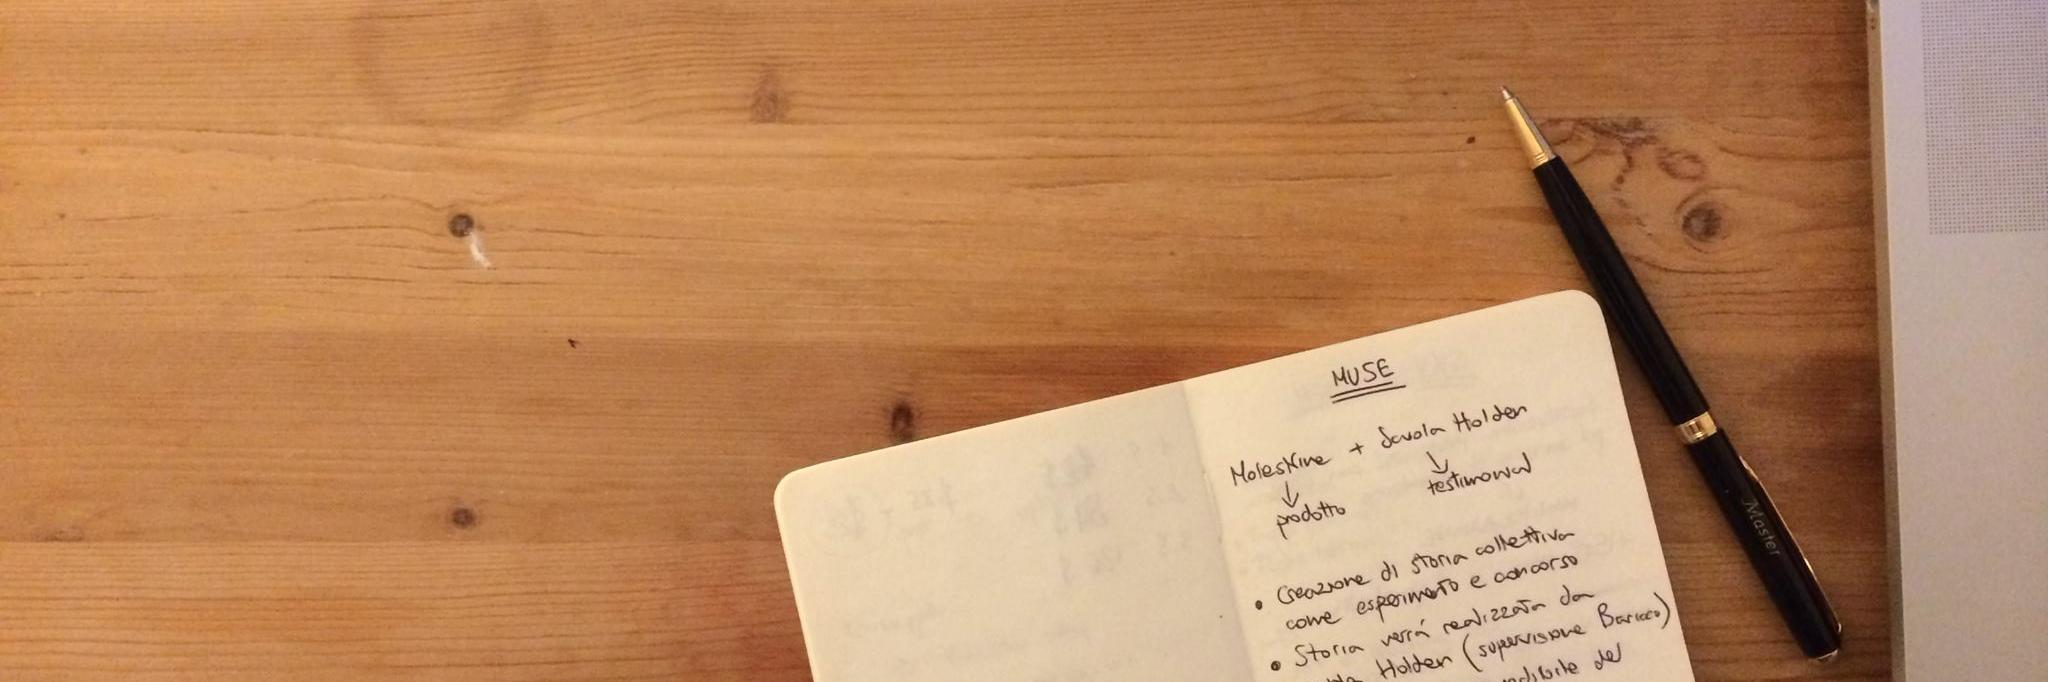 MUSE
Moleskine + Scuola Holden
prodotto
testimonial
• Creazione di storia collettiva
come esperimento e concorso
• Storia verrà realizzata da
Holden (supervisione Baricco)
del
Master